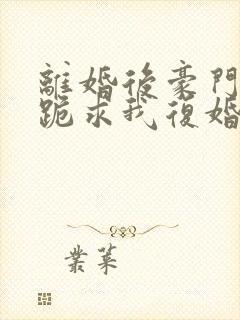 離婚後豪門
跪求我復婚
業菓